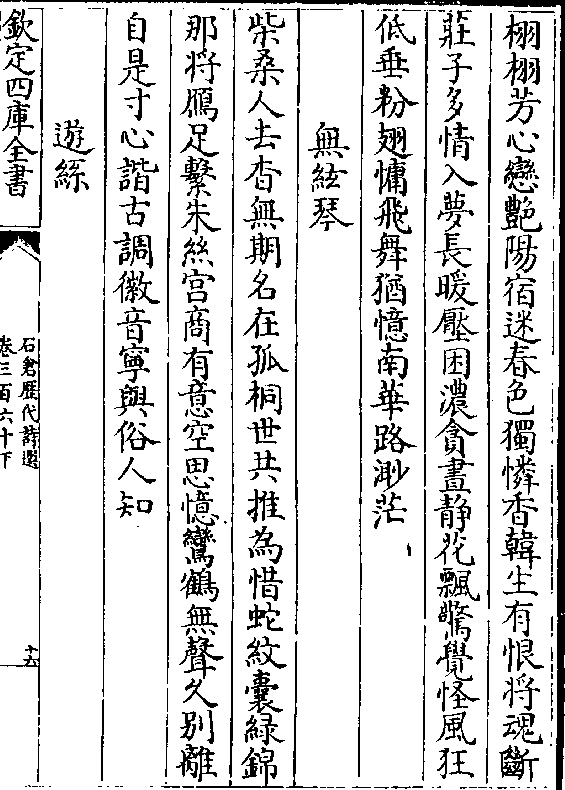 栩栩芳心戀艷陽宿迷春色獨憐香韓生有恨將魂斷
莊子多情入夢長暖壓困濃貪晝静花飄驚覺怪風狂
低垂粉翅慵飛舞猶憶南華路渺茫
無絃琴
柴桑人去杳無期名在孤桐世共推為惜蛇紋囊緑錦
那将鴈足繫朱絲宫商有意空思憶鸞鶴無聲久别離
自是寸心諧古調徽音寧與俗人知
遊絲
欽定四庫全書
石倉歷代詩選
卷三百六十下
十六